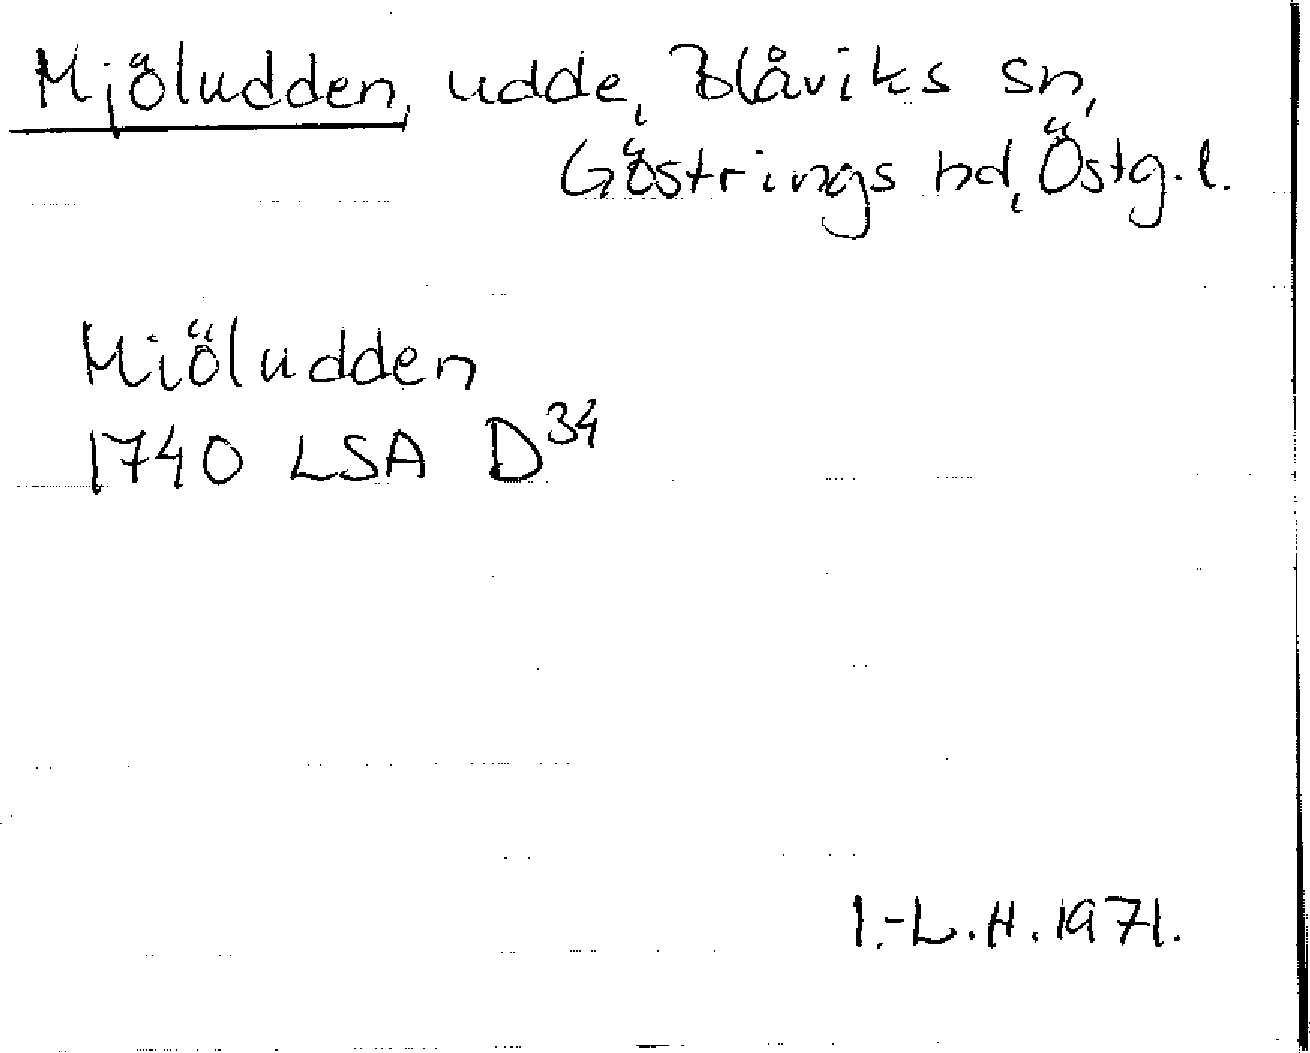 Mjöludden, udde, Blåviks sn,
Göstrings hd, Östg.l.
Miöludden
1740 LSA D³⁴
I.-L.H. 1971.